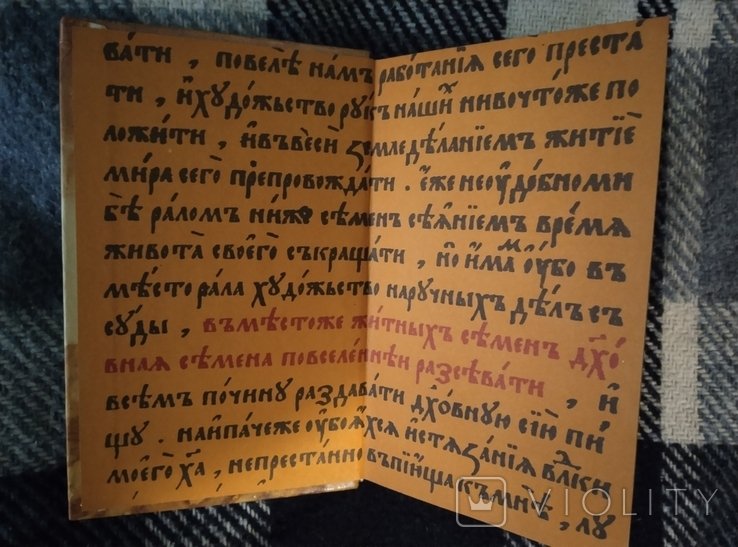 ва́ти , повелѣ̀ на́мъ рабо́танїѧ сего̀ преста́
ти , и҆ худо́жьство рꙋ́къ на́ши́ ни во что́же по
ложи́ти , и҆ въ ве́сѝ земледѣ́ланїемъ житїѐ
ми́ра сего̀ препровожда́ти . є҆́же не оу҆до́бно ми
бѣ̀ ра́ломъ ни́же сѣ́менъ сѣ́ѧнїемъ вре́мѧ
живота̀ своего̀ съкраща́ти , но̀ и҆́мамъ оу҆́бо въ
мѣ́сто ра́ла худо́жьство нарꙋ́чныхъ дѣ́лъ съ
сꙋ́ды , въмѣ́стоже жи́тныхъ сѣ́менъ дх҃о́
внаѧ сѣ́мена по вселе́ннѣи разсѣва́ти , и҆
всѣ́мъ по чи́нꙋ раздава́ти дх҃о́внꙋю сїю̀ пи́
щꙋ . наипа́чеже оу҆боѧ́хсѧ и҆стѧза́нїѧ влⷣки
моего̀ хⷭ҇а̀ , непреста́нно въпїю́ща къ мнѣ̀ , лꙋ
VIOLITY